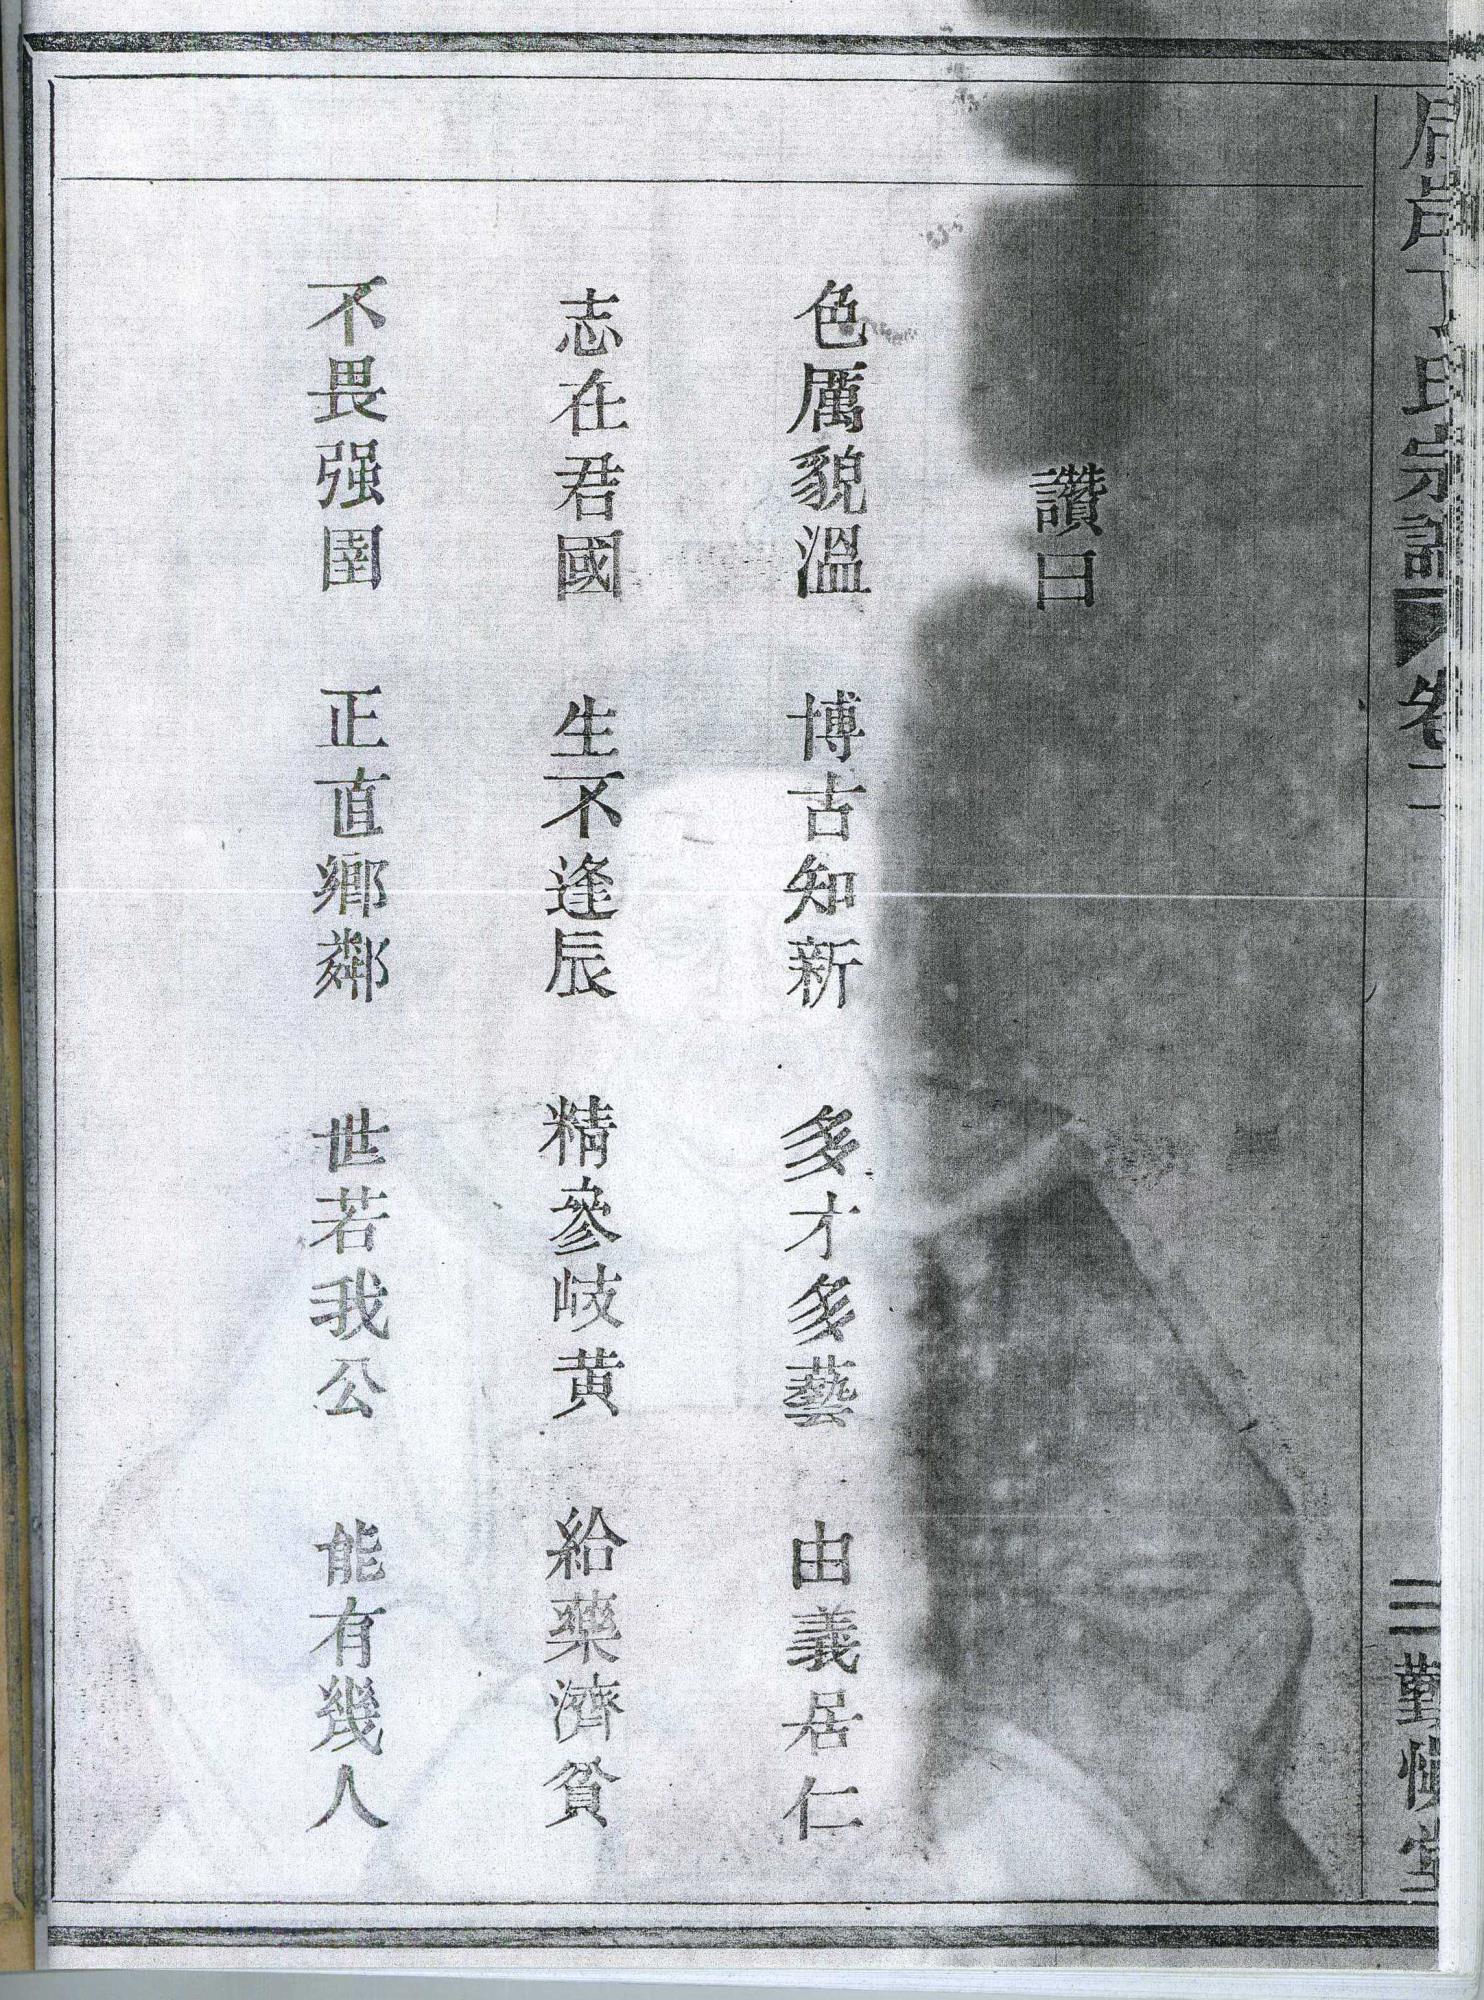 丁氏宗譜 卷二
三 勤慎堂
讚曰
色厲貌溫 博古知新 多才多藝 由義居仁
志在君國 生不逢辰 精參岐黄 給藥濟貧
不畏强圉 正直鄉鄰 世若我公 能有幾人